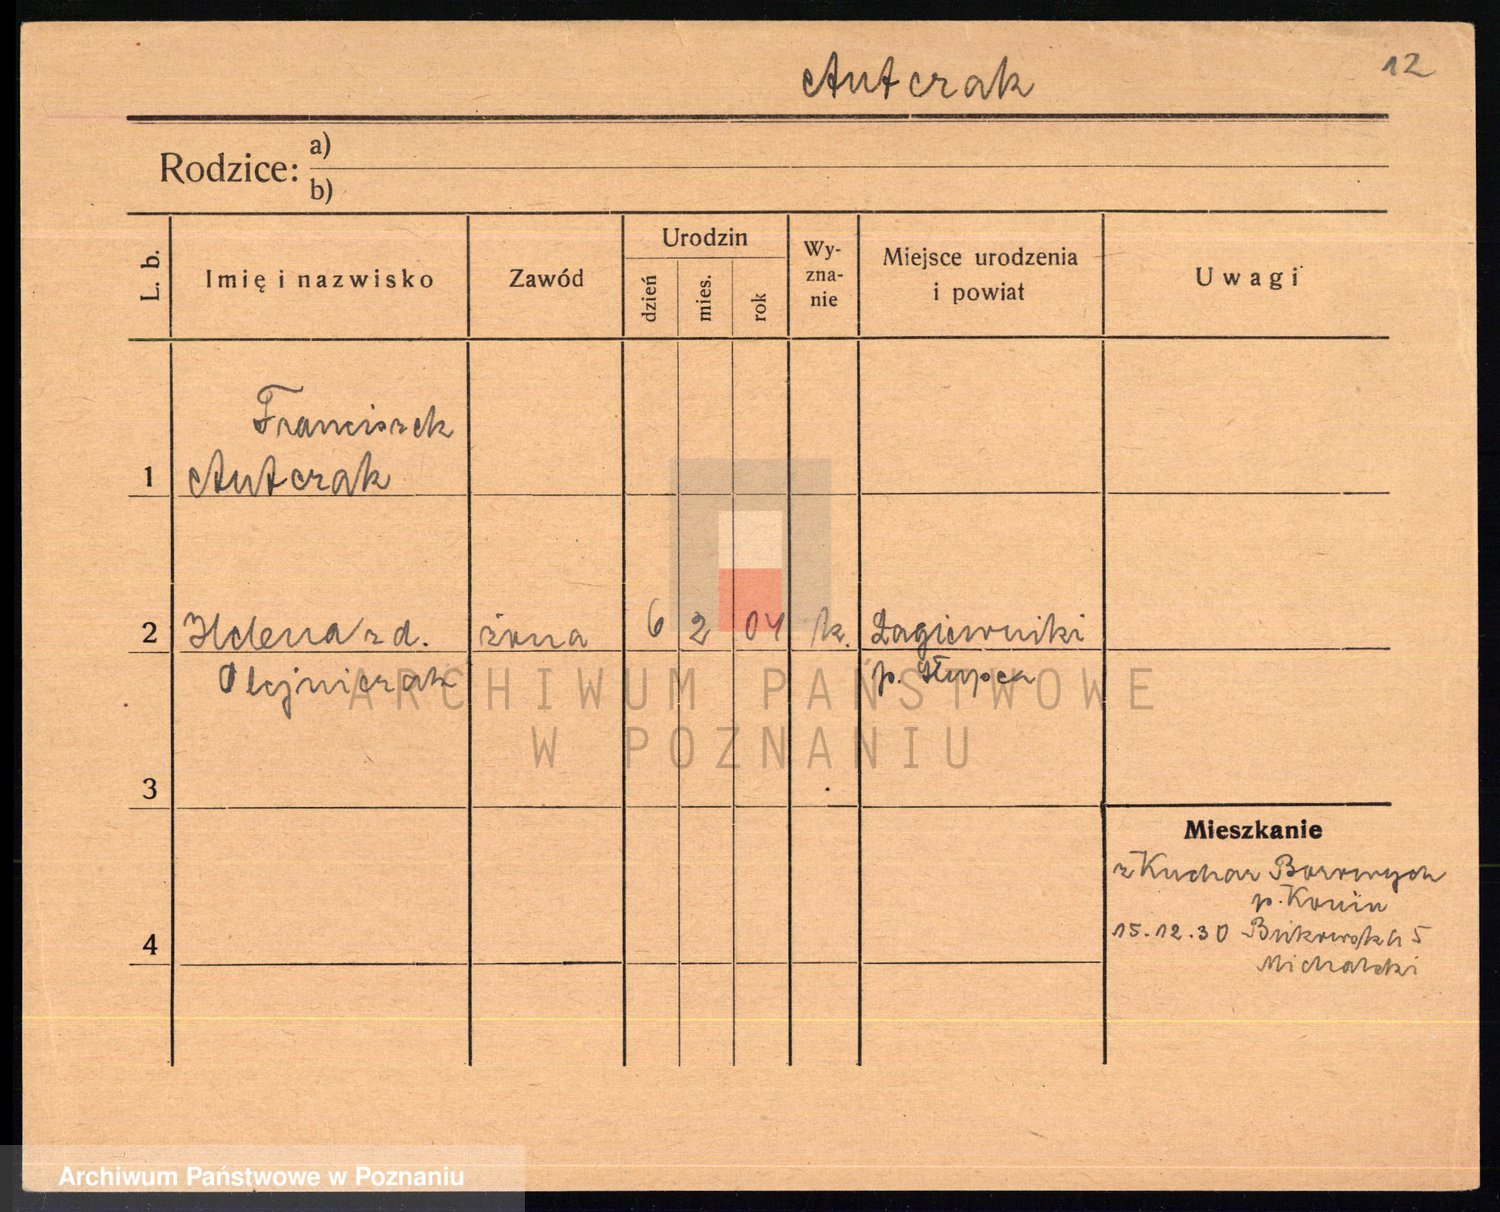 Antczak
12
Rodzice: a)
b)
L. b.
Imię i nazwisko
Zawód
Urodzin
dzień
mies.
rok
Wy-
zna-
nie
Miejsce urodzenia
i powiat
Uwagi
Franciszek
1 Antczak
2 Helena z d. żona 6 2 04 k. Łagiewniki
Olejniczak p. Słupca
ARCHIWUM PAŃSTWOWE
W POZNANIU
3
Mieszkanie
z Kuchar Borowych
p. Konin
4
15.12.30 Bukowska 5
Michalski
Archiwum Państwowe w Poznaniu